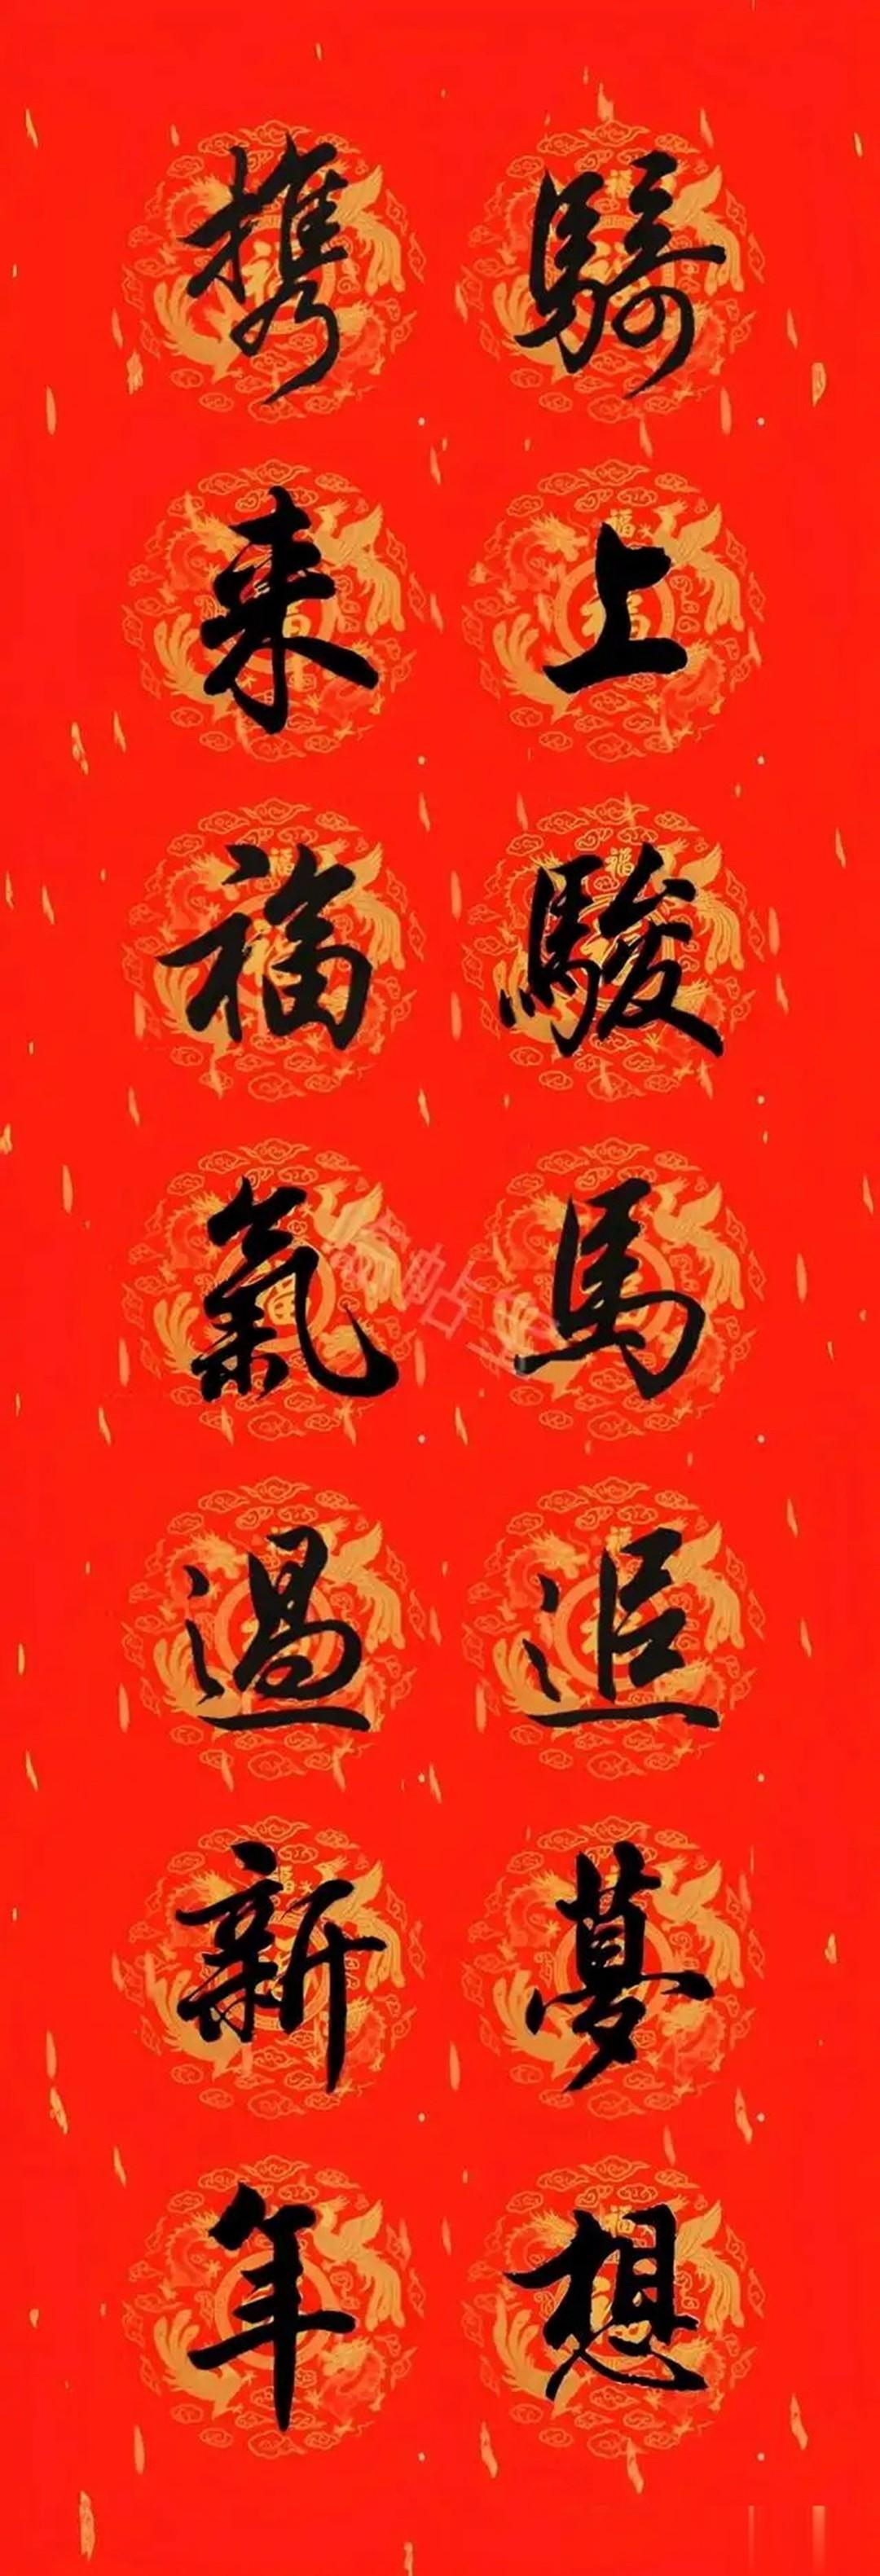 騎上駿馬追夢想
携来福氣過新年